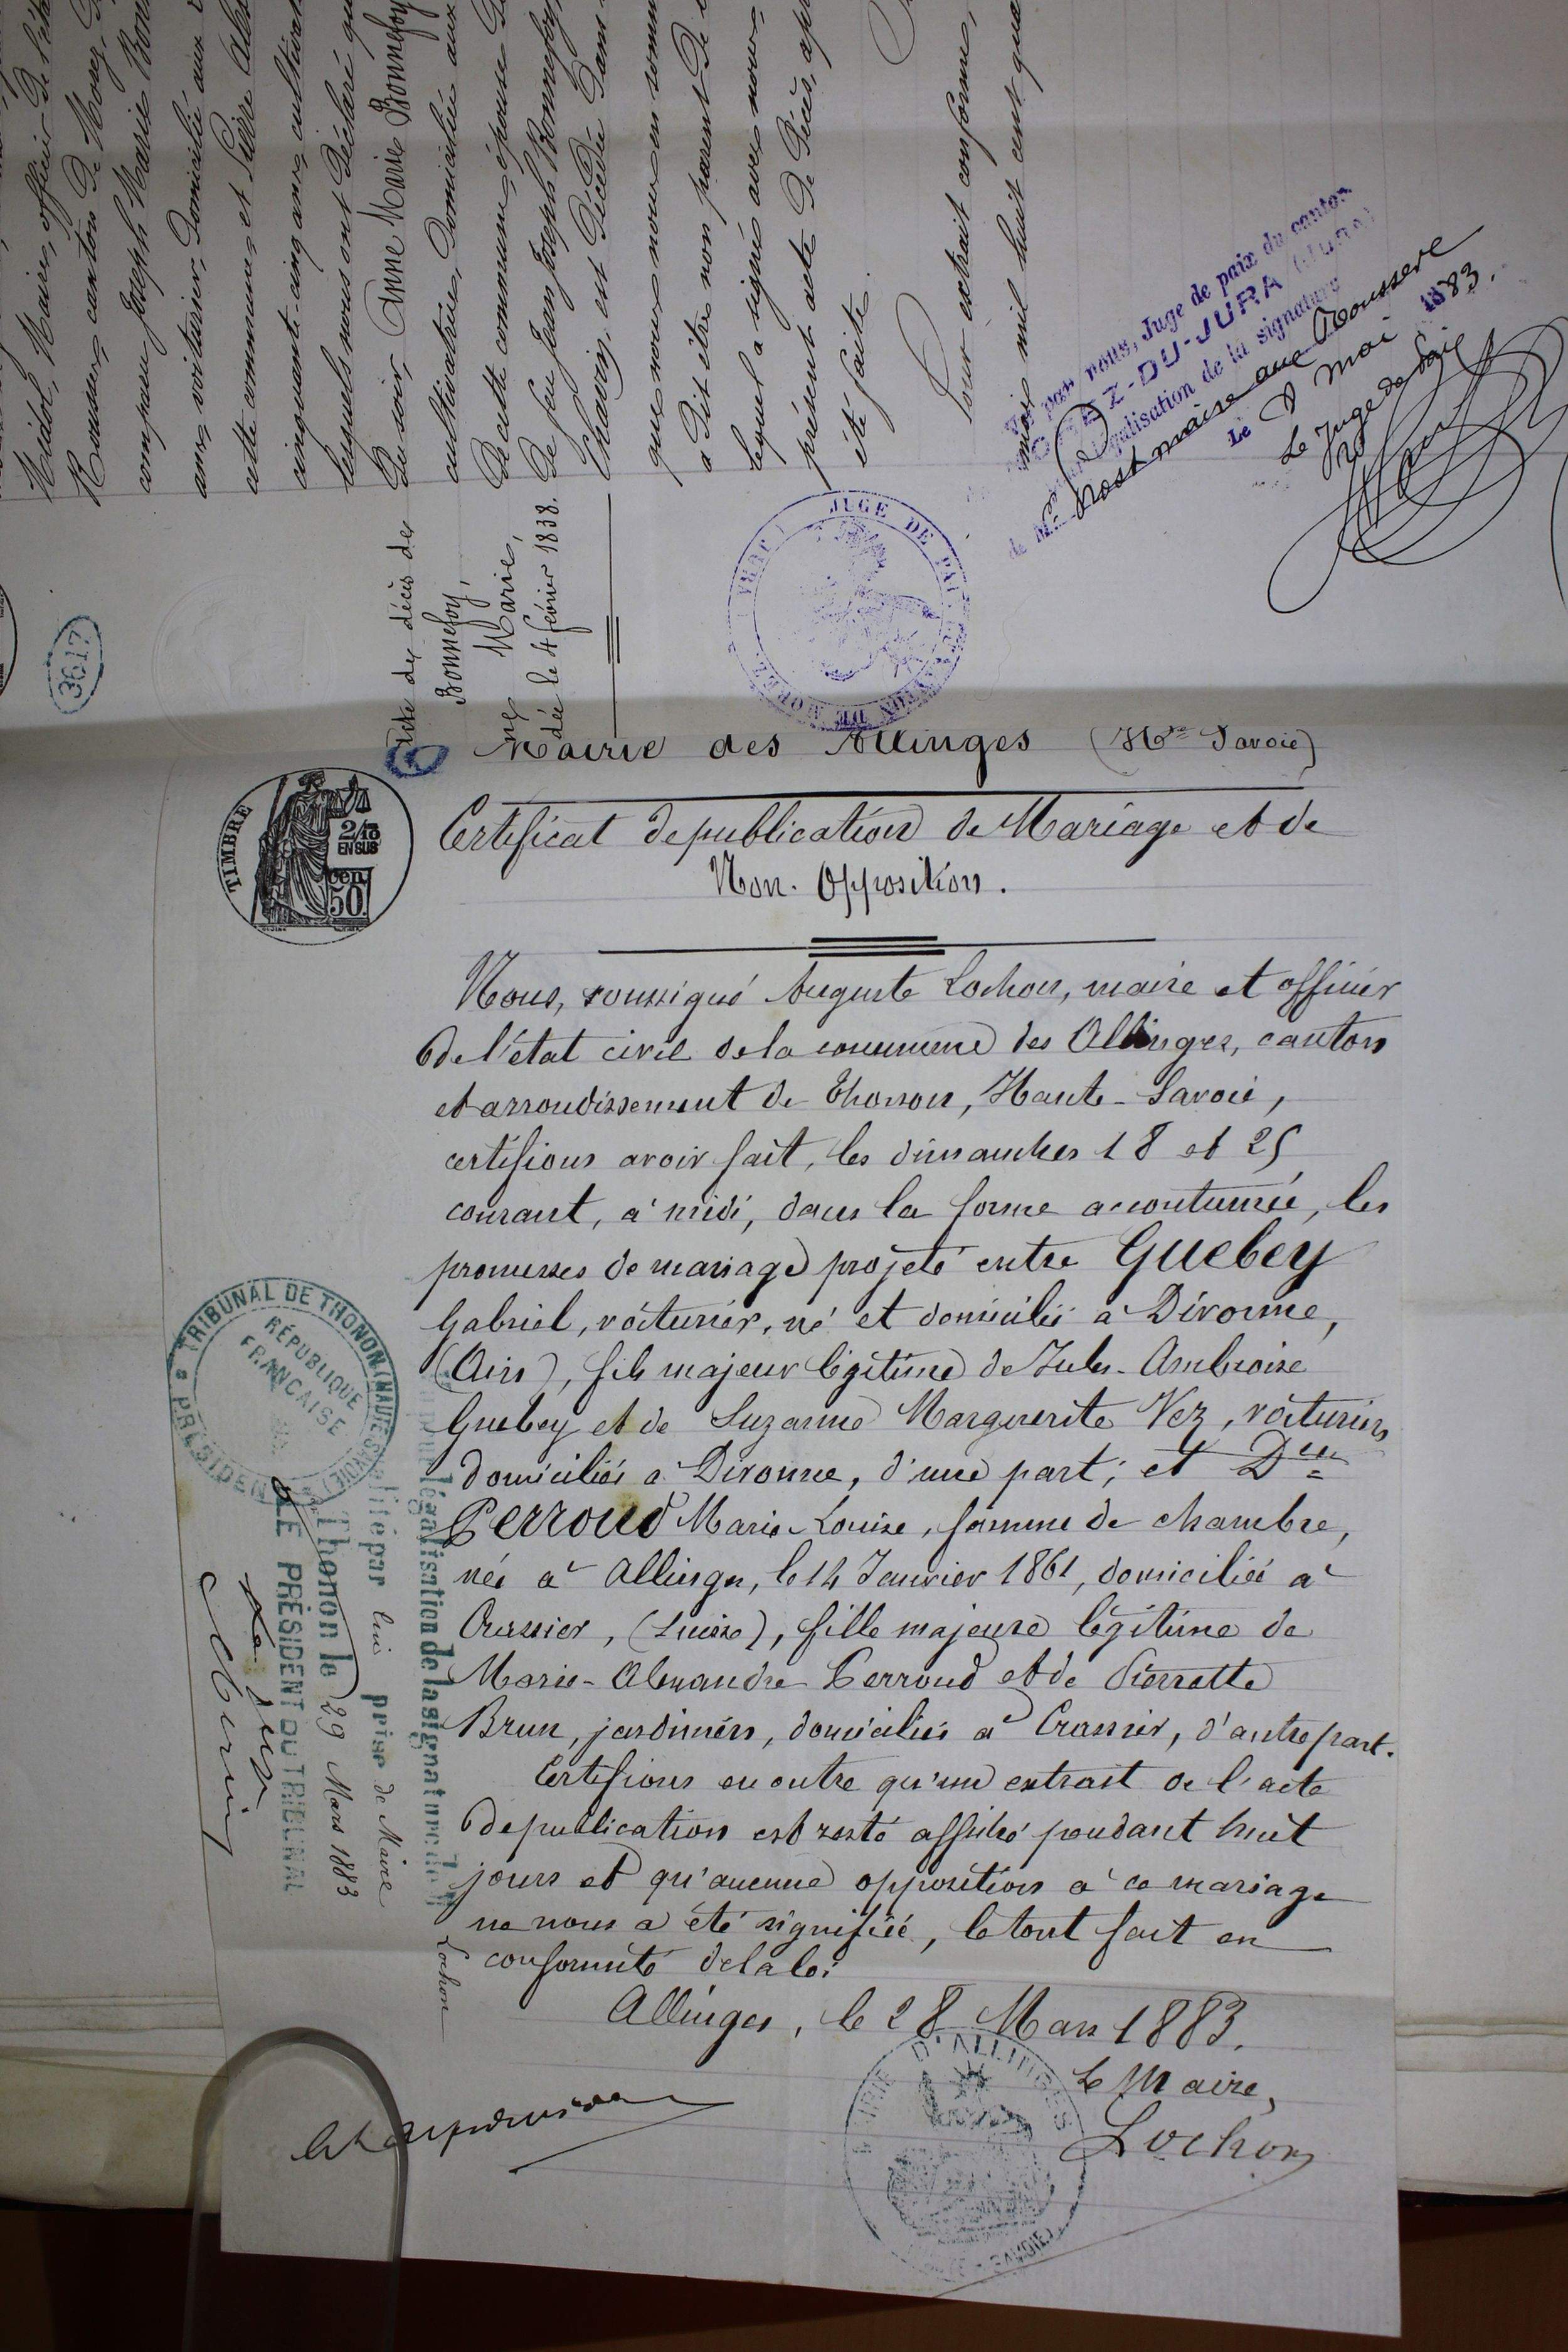 Midol, Maire, officier de l'éta
Rousses, canton de Morez, D
comparu Joseph Marie Bon
ans, voiturier, domicilié aux
cette commune, et Pierre Ale
cinquante-cinq ans, cultivat
lesquels nous ont déclaré qu
du soir, Anne Marie Bonnefoy
cultivatrice, domiciliée aux
de cette commune, épouse d
de feu Jean Joseph Bonnefoy
Chavin, est décédée dans
que nous nous en somm
a dit être non parent de
lequel a signé avec nous
présent acte de décès, ap
été faite.
Pour extrait conforme,
mai mil huit cent qua
Acte de décès de
Bonnefoy,
Marie,
dée le 4 février 1838.
3617
Vu par nous, Juge de paix du canton
MOREZ-DU-JURA (JURA)
légalisation de la signature
de Mr. Prost maire aux Rousses
Le 9 mai 1883.
Le Juge de Paix
JUGE DE PAIX
CANTON DE MOREZ
6
Mairie des Allinges (Hte Savoie)
TIMBRE
2/10
EN SUS
50
Certificat de publication de Mariage et de
Non-Opposition.
Nous, soussigné Auguste Lochon, maire et officier
de l'état civil de la commune des Allinges, canton
et arrondissement de Thonon, Haute-Savoie,
certifions avoir fait, les dimanches 18 et 25
courant, à midi, dans la forme accoutumée, les
promesses de mariage projeté entre Guebey
Gabriel, voiturier, né et domicilié à Divonne,
(Ain), fils majeur légitime de Jules-Ambroise
Guebey et de Suzanne Marguerite Vez, voituriers
domiciliés à Divonne, d'une part; et Dlle
Perroud Marie Louise, femme de chambre,
née à Allinges, le 14 Janvier 1861, domiciliée à
Crassier, (Suisse), fille majeure légitime de
Marie-Alexandre Perroud et de Pierrette
Brun, jardiniers, domiciliés à Crassier, d'autre part.
Certifions en outre qu'un extrait de l'acte
de publication est resté affiché pendant huit
jours et qu'aucune opposition à ce mariage
ne nous a été signifiée, le tout fait en
conformité de la loi
Allinges, le 28 Mars 1883.
Le Maire,
Lochon
MAIRIE D'ALLINGES
SAVOIE)
TRIBUNAL DE THONON (HAUTE SAVOIE)
PRÉSIDENT
RÉPUBLIQUE
FRANCAISE
légalisation de la signature de M Lochon
par lui prise de Maire
Thonon le 29 Mars 1883
LE PRÉSIDENT DU TRIBUNAL